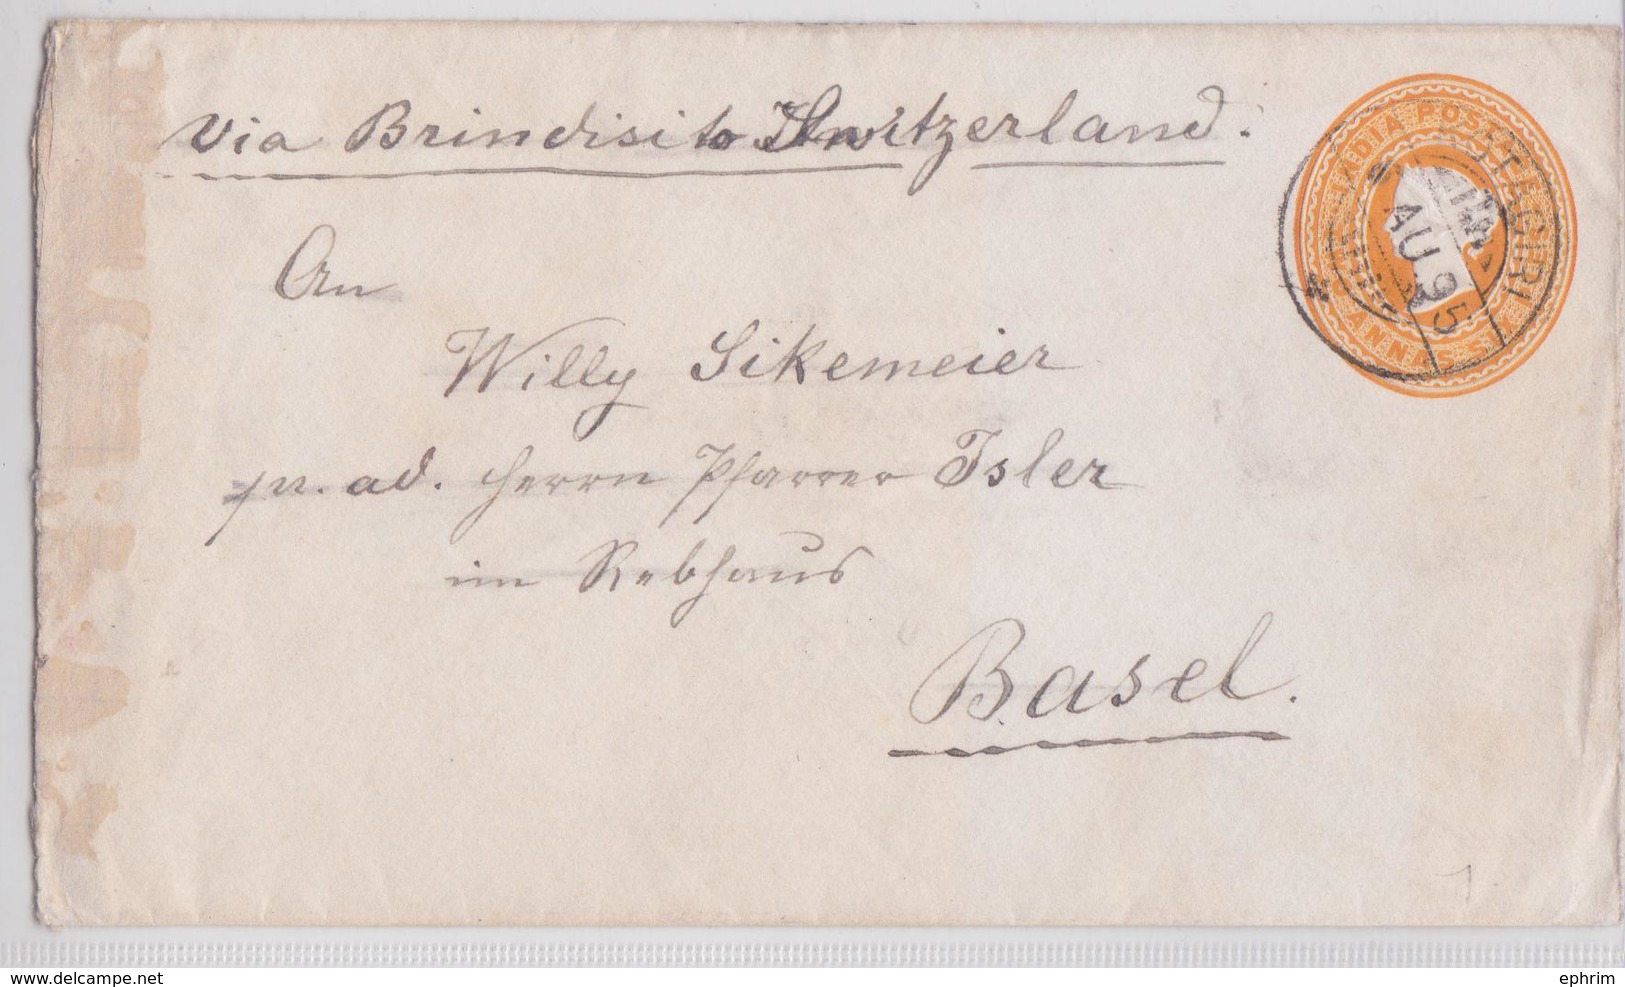 via Brindisi to Switzerland.
INDIA POSTAGE
ANNAS SIX
AU 95
An
Willy Sikemeier
pr. ad. Herrn Pfarrer Isler
im Rebhaus
Basel.
www.delcampe.net
ephrim